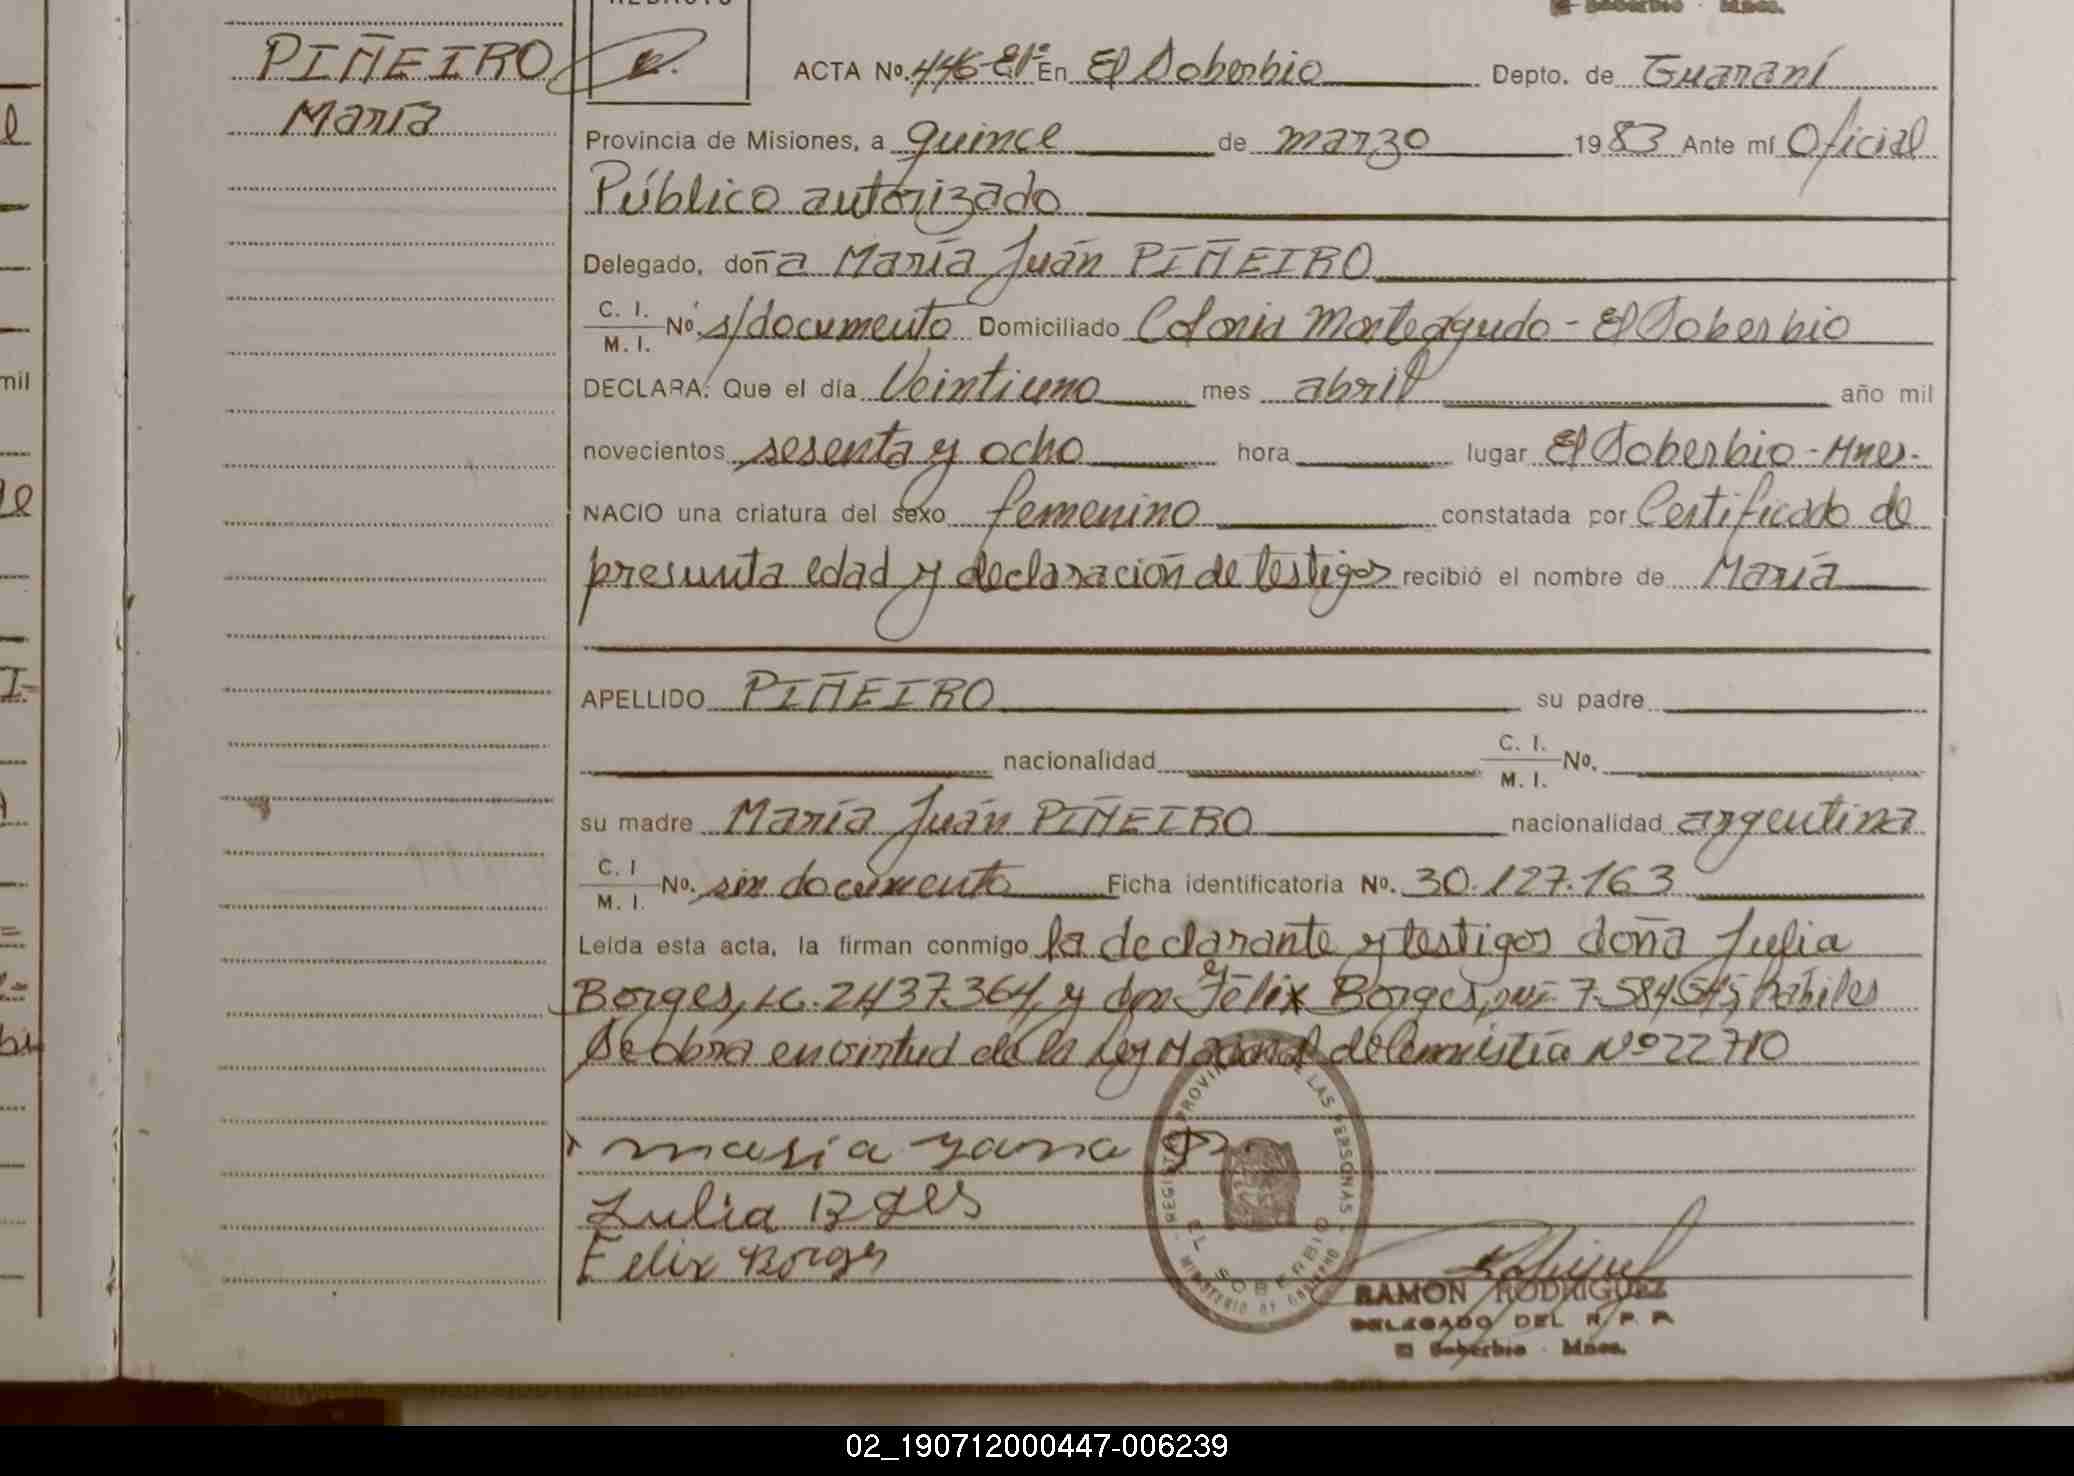 REDACTO
El Soberbio - Mnes.
PIÑEIRO
María
ACTA No. 446-Elº En El Soberbio Depto. de Guaraní
Provincia de Misiones, a quince de marzo 1983 Ante mí Oficial
Público autorizado
Delegado, doña María Juán PIÑEIRO
C. I. M. I. No. s/documento Domiciliado Colonia Monteagudo - El Soberbio
DECLARA: Que el día Veintiuno mes abril año mil
novecientos sesenta y ocho hora lugar El Soberbio - Mnes.
NACIO una criatura del sexo femenino constatada por Certificado de
presunta edad y declaración de testigos recibió el nombre de María
APELLIDO PIÑEIRO su padre
nacionalidad C. I. M. I. No.
su madre María Juán PIÑEIRO nacionalidad argentina
C. I M. I. No. sin documento Ficha identificatoria No. 30.127.163
Leída esta acta, la firman conmigo la declarante y testigos doña Julia
Borges, LC. 2437.364, y don Félix Borges, MI 7.584.545 hábiles
Se obra en virtud de la Ley de Amnistía Nº 22710
maria
Julia
Felix Borges
REGISTRO PROVINCIAL DE LAS PERSONAS
EL SOBERBIO
MINISTERIO DE GOBIERNO
RAMON RODRIGUEZ
DELEGADO DEL R. P. P.
El Soberbio - Mnes.
02_190712000447-006239